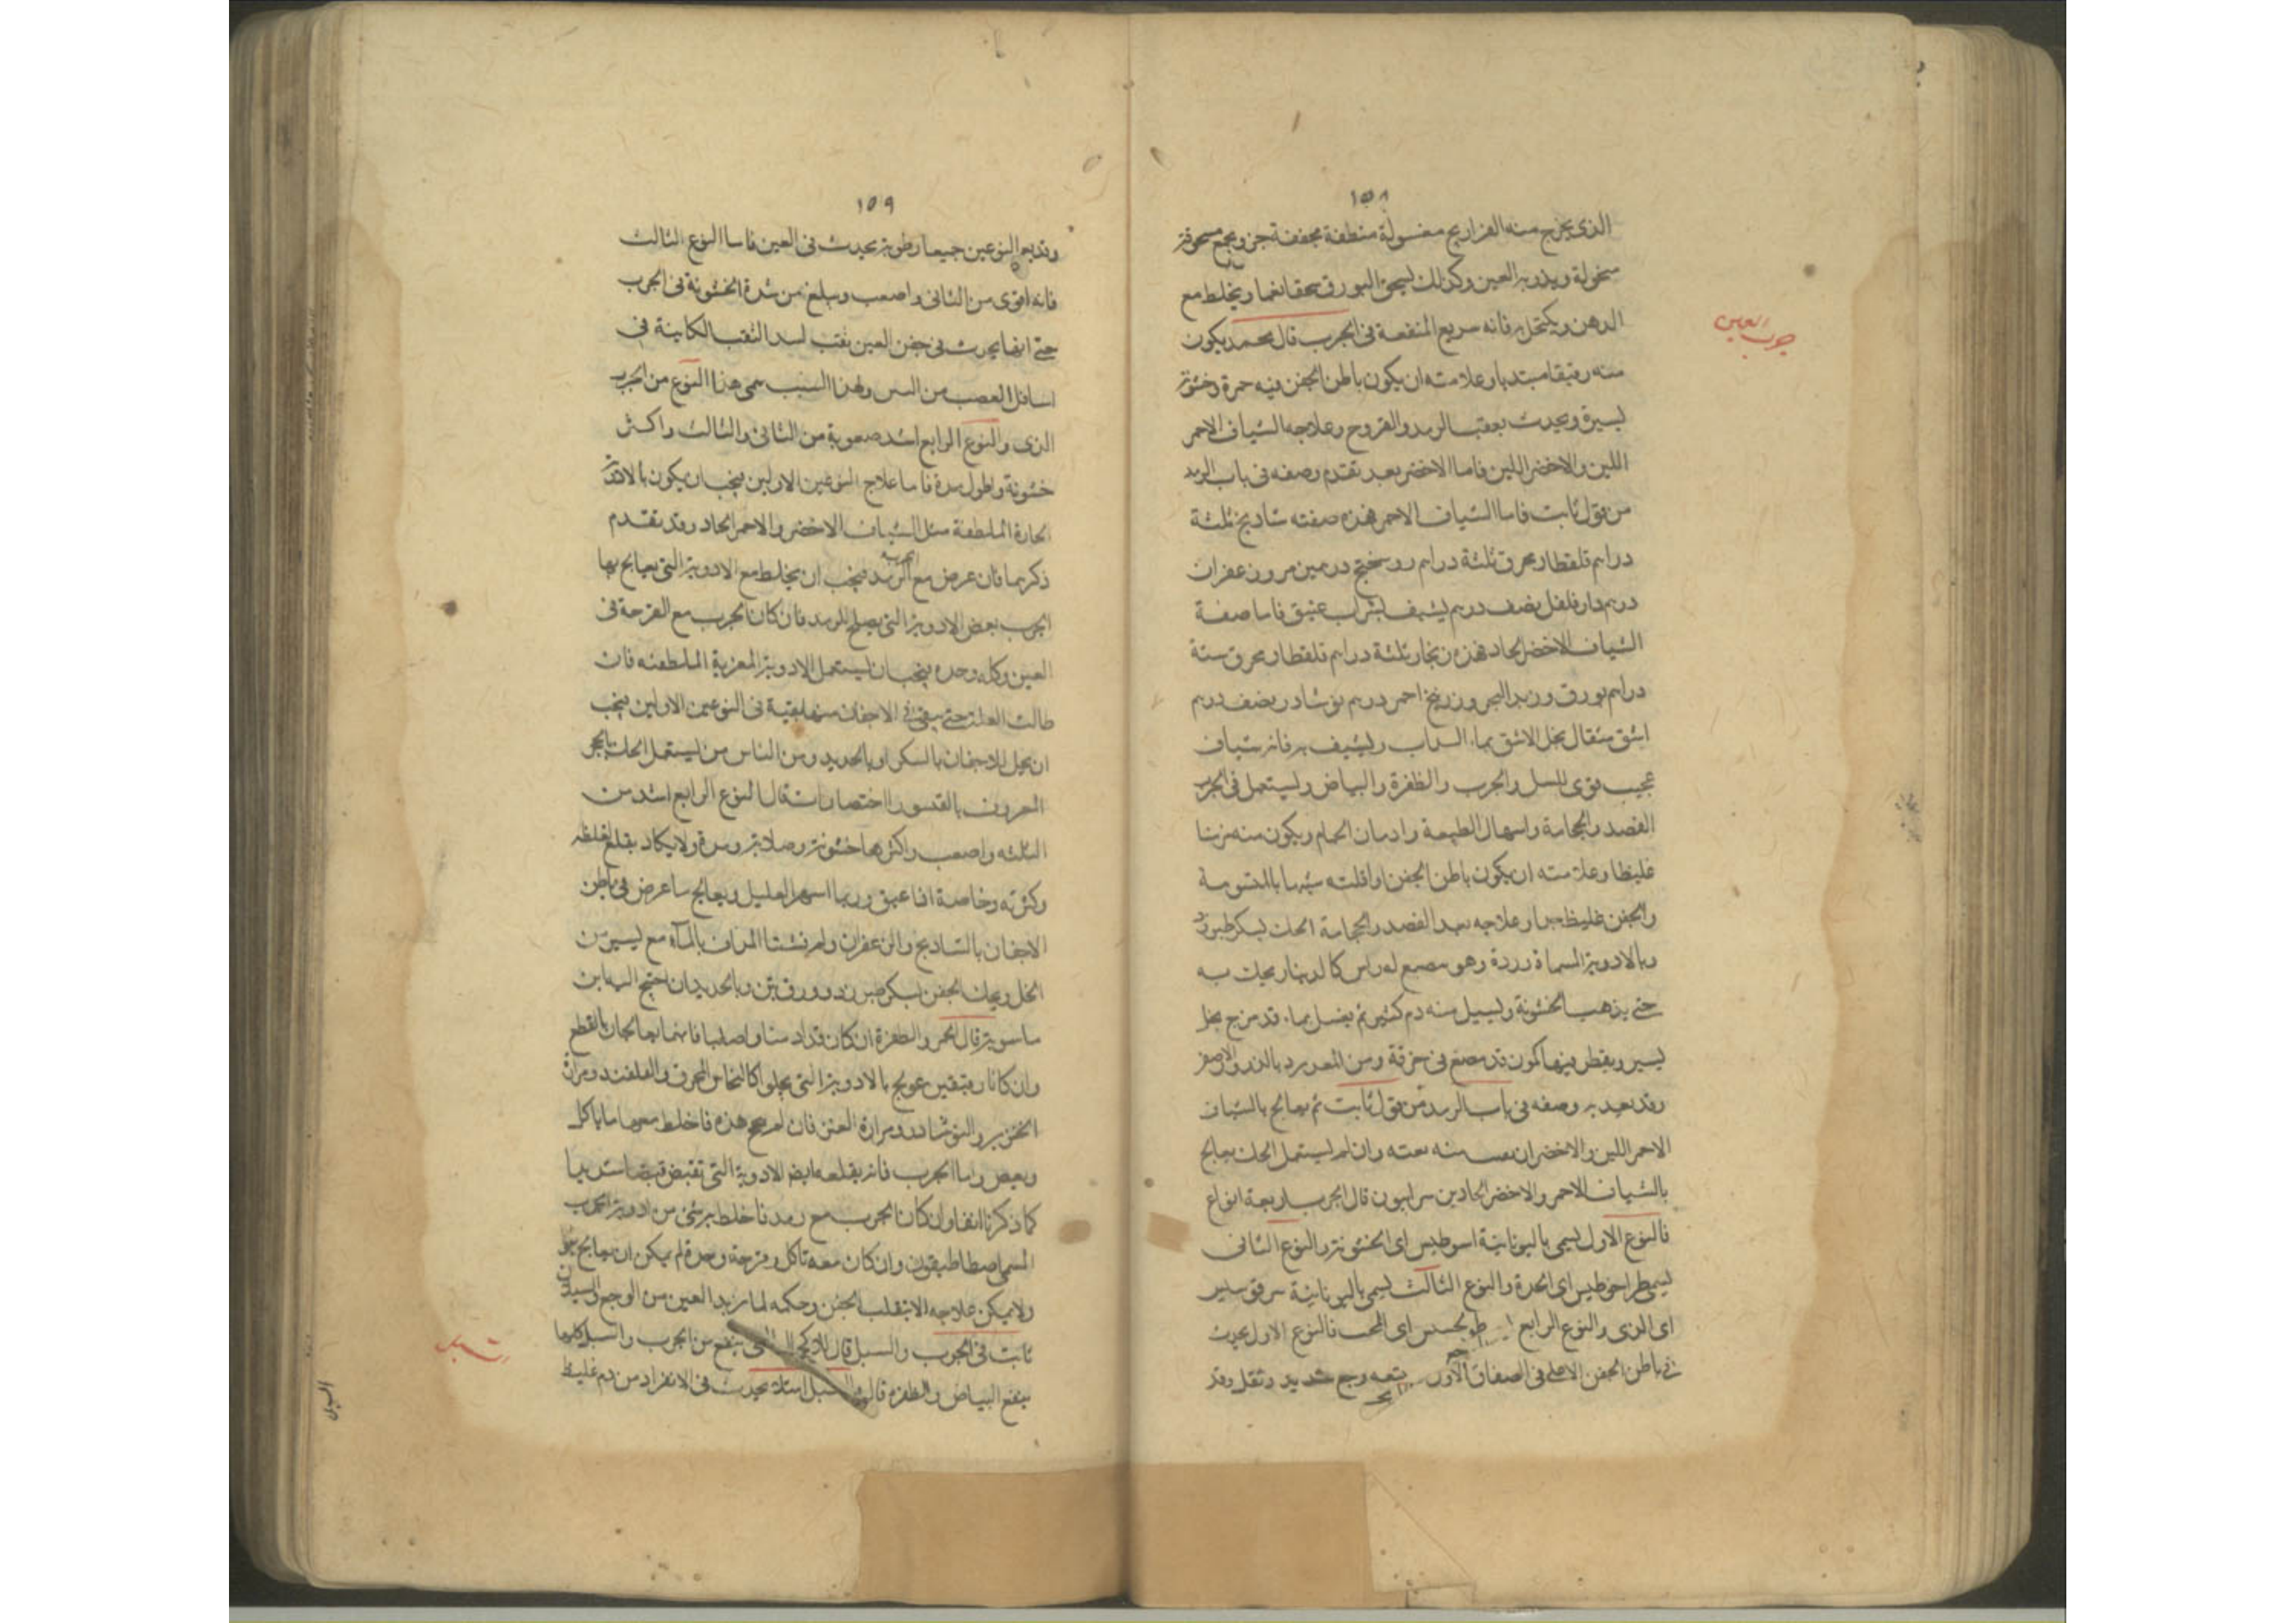 ١٥٨
الذى يخرج منه الفراريج مغسولة منظفة مجففة جزو يجمع مسحوقة
منخولة ويذر به العين وكذلك يسحق البورق سحقا نعما ويخلط مع
الدهن ويكتحل به فانه سريع المنفعة فى الجرب قال محمد يكون
جرب العين
منه رقيقا مبتديا وعلامته ان يكون باطن الجفن فيه حمرة وخشونة
يسيرة ويحدث بعقب الرمد والقروح وعلاجه الشياف الاحمر
اللين والاخضر اللين فاما الاخضر بعد تقدم وصفه فى باب الرمد
من قول ثابت فاما الشياف الاحمر فهذه صفته شاذنج ثلثة
دراهم قلقطار محرق ثلثة دراهم روسختج درهمين مر وزعفران
درهم دارفلفل نصف درهم يشيف بشراب عتيق فاما صفة
الشياف الاخضر الحاد فهذه زنجار ثلثة دراهم قلقطار محرق ستة
دراهم بورق وزبد البحر وزرنيخ احمر درهم نوشادر نصف درهم
اشق مثقال يحل الاشق بماء السداب ويشيف به فانه شياف
عجيب قوى للسبل والجرب والظفرة والبياض ويستعمل فى الجرب
الفصد والحجامة واسهال الطبيعة وادمان الحمام ويكون منه مزمنا
غليظا وعلامته ان يكون باطن الجفن اذا قلبته شبيها
والجفن غليظ جدا وعلاجه بعد الفصد والحجامة الحك بسكر طبرزد
وبالادوية المسماة وردة وهو مبضع له راس كالدينار يحك به
حتى يذهب الخشونة ويسيل منه دم كثير ثم يغسل بماء قد مزج بخل
يسير ويقطر فيها كمون قد مضغ فى خرقة ومن الغد يذر بالذرور الاصفر
وقد وصفه فى باب الرمد من قول ثابت ثم يعالج بالشياف
الاحمر اللين والاخضر ان منه وان لم يستعمل الحك يعالج
بالشياف الاحمر والاخضر الحادين سرابيون قال الجرب اربعة انواع
فالنوع الاول يسمى باليونانية اسوطيس اى الخشونة والنوع الثانى
يسمى طراخوطيس اى الحدة والنوع الثالث يسمى باليونانية
اى والنوع الرابع اى فالنوع الاول يحدث
فى باطن الجفن الاعلى فى الصفاق الاول يتبعه وجع شديد وثقل وقد
١٥٩
وقد يعم النوعين جميعا رطوبة يحدث فى العين فاما النوع الثالث
فانه اقوى من الثانى واصعب ويبلغ من شدة الخشونة فى الجرب
حتى انها يحدث فى جفن العين نقب النقب الكاينة فى
اسافل العصب من ولهذا السبب سمى هذا النوع من الجرب
الذى والنوع الرابع اشد صعوبة من الثانى والثالث واكثر
خشونة واطول مدة فاما علاج النوعين الاولين فيجب ان يكون بالادوية
الحارة الملطفة مثل الشياف الاخضر والاحمر الحاد وقد تقدم
ذكرهما فان عرض مع الرمد فيجب ان يخلط مع الادوية التى يعالج بها
الجرب بعض الادوية التى يصلح للرمد فان كان الجرب مع القرحة فى
العين وكله وحده فيجب ان يستعمل الادوية المغرية الملطفة فان
طالت العلة حتى يبقى فى الاجفان منها بقية فى النوعين الاولين فيجب
ان يحك الاجفان بالسكر او بالحديد ومن الناس من يستعمل الحك بالحجر
المعروف بالقيسور اختصارا قال النوع الرابع اشد من
الثلثة واصعب واكثرها خشونة وصلابة ومدة ولا يكاد يقلع لغلظه
وكثرته وخاصة اذا عتق وربما اسهر العليل ويعالج ما عرض فى باطن
الاجفان بالشاذنج والزعفران المداف بالماء مع يسير من
الخل ويحك الجفن بسكر طبرزد وورق تين وبالحديد ان احتيج اليه ابن
ماسويه قال الجرب والظفرة ان كان قد ازمنا وصلبا فانهما يعالجان بالقطع
وان كانا رقيقين عولج بالادوية التى يجلوا كالنحاس المحرق والقلقند ومرارة
الخنزير والنوشادر ومرارة العنز فان لم ينجع هذه فاخلط معها ما ياكل
ويعفن واما الجرب فانه يقلعه ايضا الادوية التى تقبض قبضا شديدا
كما ذكرنا انفا وان كان الجرب مع رمد فاخلط به شئ من ادوية الجرب
المسمى اصطاطيقون وان كان معه تاكل وقرحة وحدة لم يمكن ان يعالج
ولا يمكن علاجه الا بقلب الجفن وحكه لما يزيد العين من الوجع والسيلان
ثابت فى الجرب والسبل قال ينفع من الجرب والسبل كلها
ينفع البياض والظفرة قال السبل امتلا يحدث فى الانفراد من دم غليظ
السبل